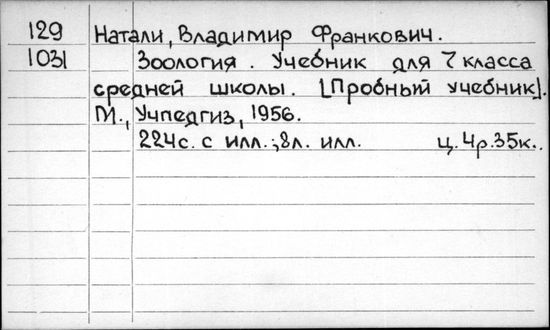 129 Натали, Владимир Франкович.
1031 Зоология. Учебник для 7 класса
средней школы. [Пробный учебник].
М., Учпедгиз, 1956.
224с. с илл.; 8л. илл. ц. 4р.35к.